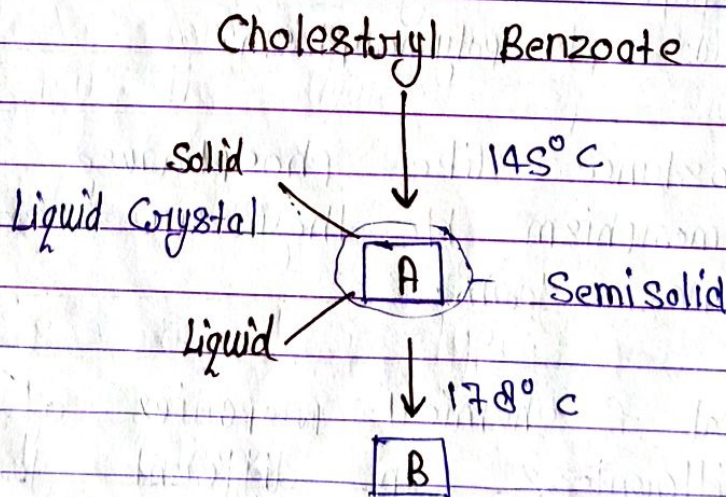 Cholestryl Benzoate
145° C
Solid
Liquid Crystal
A
Semi Solid
Liquid
178° C
B